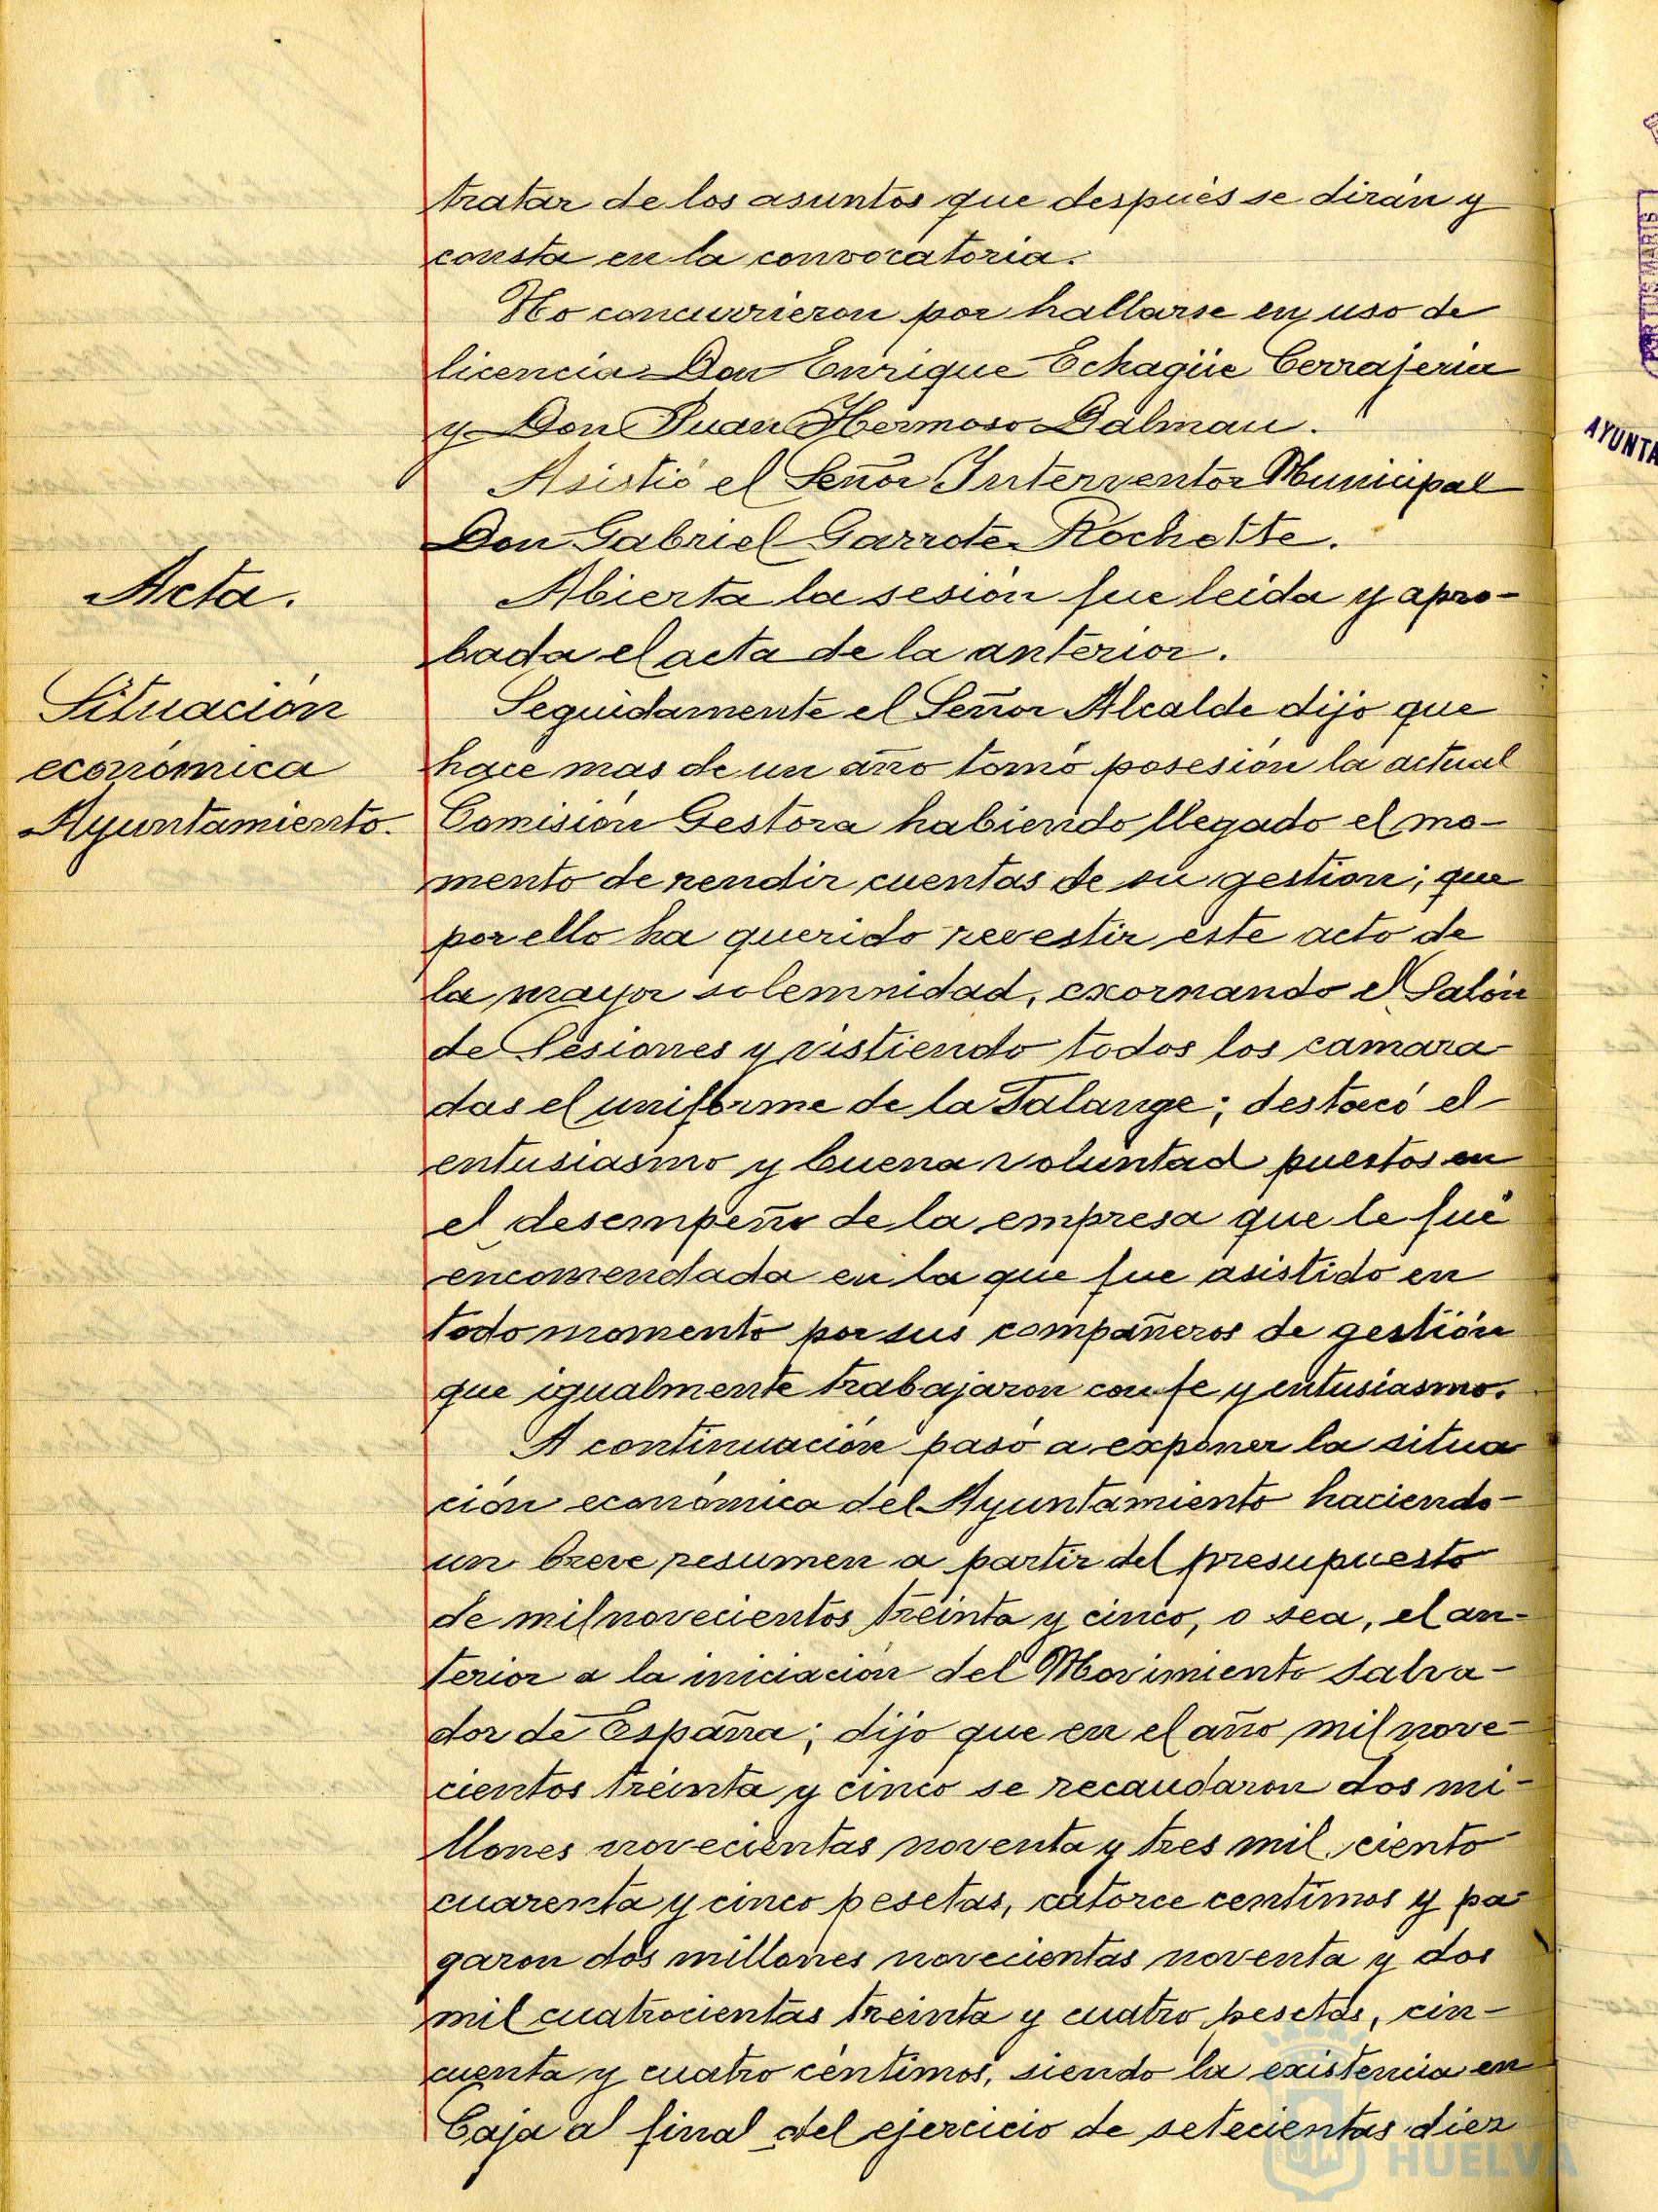 tratar de los asuntos que después se dirán y
consta en la convocatoria.
No concurrieron por hallarse en uso de
licencia Don Enrique Echagüe Cerrajeria
y Don Juan Hermoso Dalmau.
Asistió el Señor Interventor Municipal
Don Gabriel Garrote Rochette.
Acta.
Abierta la sesión fue leida y apro-
bada el acta de la anterior.
Situación
económica
Ayuntamiento.
Seguidamente el Señor Alcalde dijo que
hace mas de un año tomó posesión la actual
Comisión Gestora habiendo llegado el mo-
mento de rendir cuentas de su gestion; que
por ello ha querido revestir este acto de
la mayor solemnidad, exornando el Salón
de Sesiones y vistiendo todos los camara
das el uniforme de la Falange; destacó el
entusiasmo y buena voluntad puestos en
el desempeño de la empresa que le fué
encomendada en la que fue asistido en
todo momento por sus compañeros de gestión
que igualmente trabajaron con fe y entusiasmo.
A continuación pasó a exponer la situa
ción económica del Ayuntamiento haciendo
un breve resumen a partir del presupuesto
de mil novecientos treinta y cinco, o sea, el an-
terior a la iniciación del Movimiento Salva-
dor de España; dijo que en el año mil nove-
cientos treinta y cinco se recaudaron dos mi-
llones novecientas noventa y tres mil ciento
cuarenta y cinco pesetas, catorce centimos y pa-
garon dos millones novecientas noventa y dos
mil cuatrocientas treinta y cuatro pesetas, cin-
cuenta y cuatro céntimos, siendo la existencia en
Caja al final del ejercicio de setecientas diez
PORTUS MARIS
AYUNTA
HUELVA